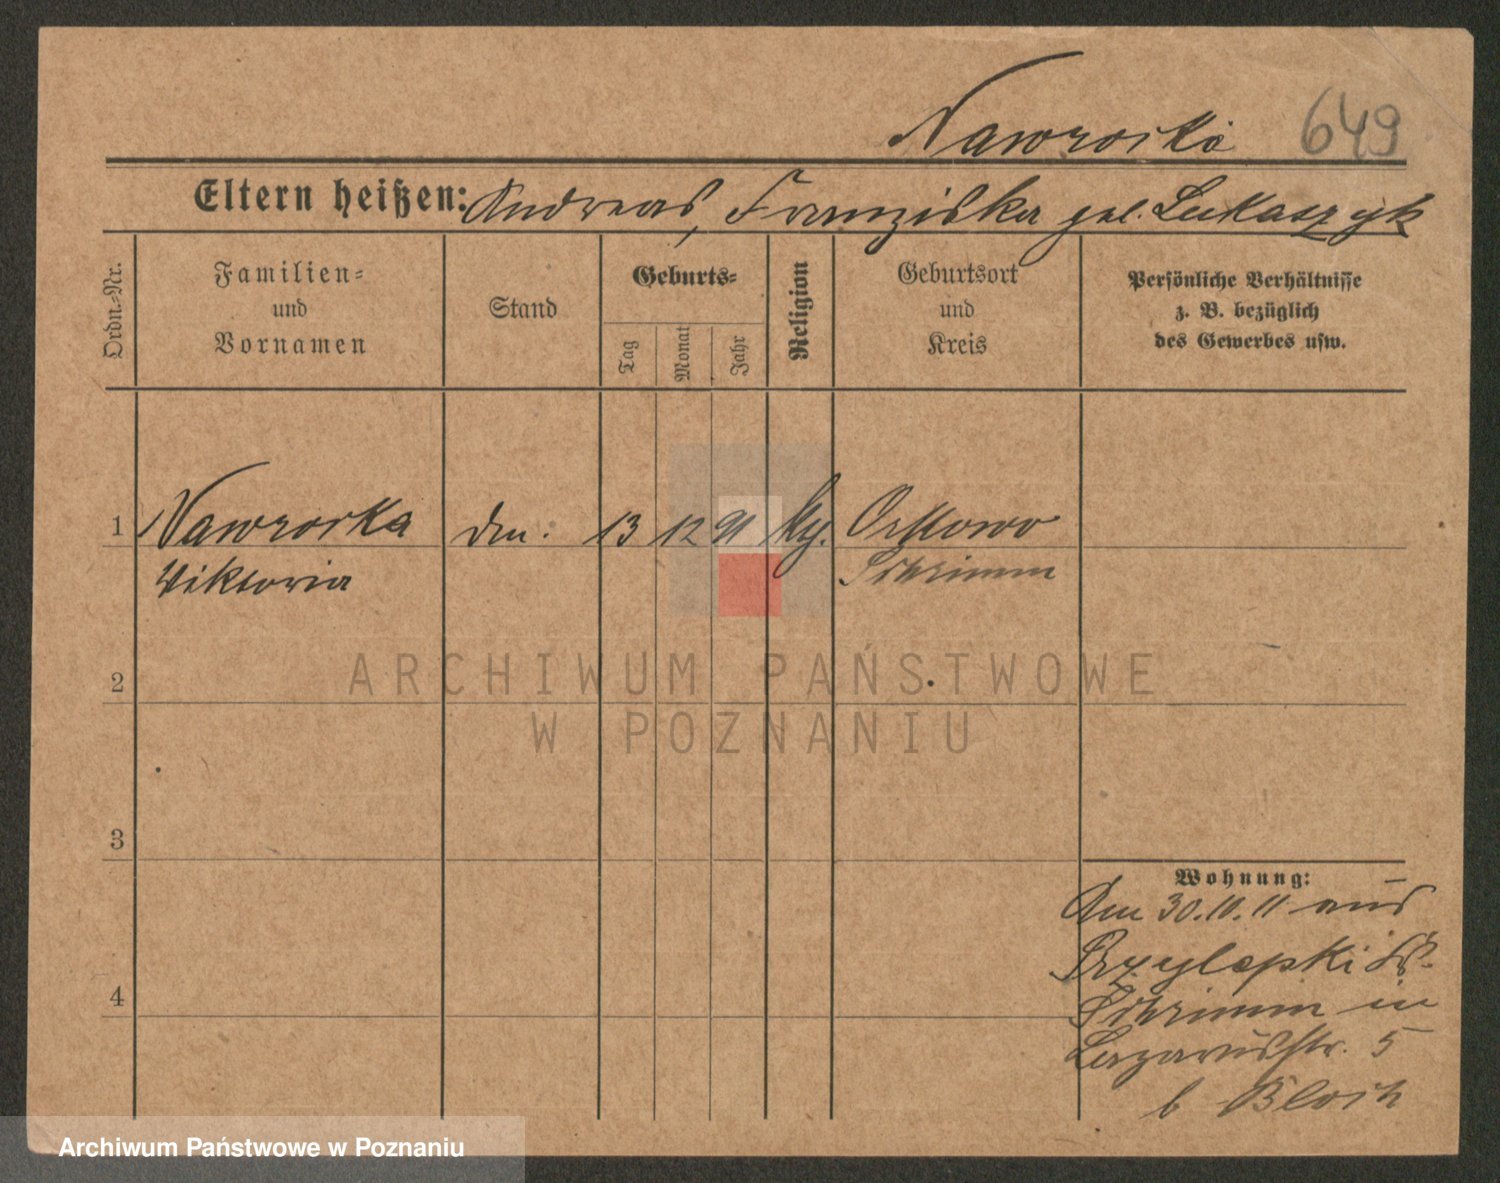 Nawrocka 649
Eltern heißen: Andreas, Franziska geb. Lukaszyk
Ordn.-Nr.
Familien-
und
Vornamen
Stand
Geburts-
Tag
Monat
Jahr
Religion
Geburtsort
und
Kreis
Persönliche Verhältnisse
z. B. bezüglich
des Gewerbes usw.
1 Nawrocka 13 12 91
Viktoria Schrimm
2
3
4
ARCHIWUM PAŃSTWOWE
W POZNANIU
Wohnung:
Am 30.10.11 aus
Przylepki
Schrimm in
Lazarusstr. 5
b Bloch
Archiwum Państwowe w Poznaniu